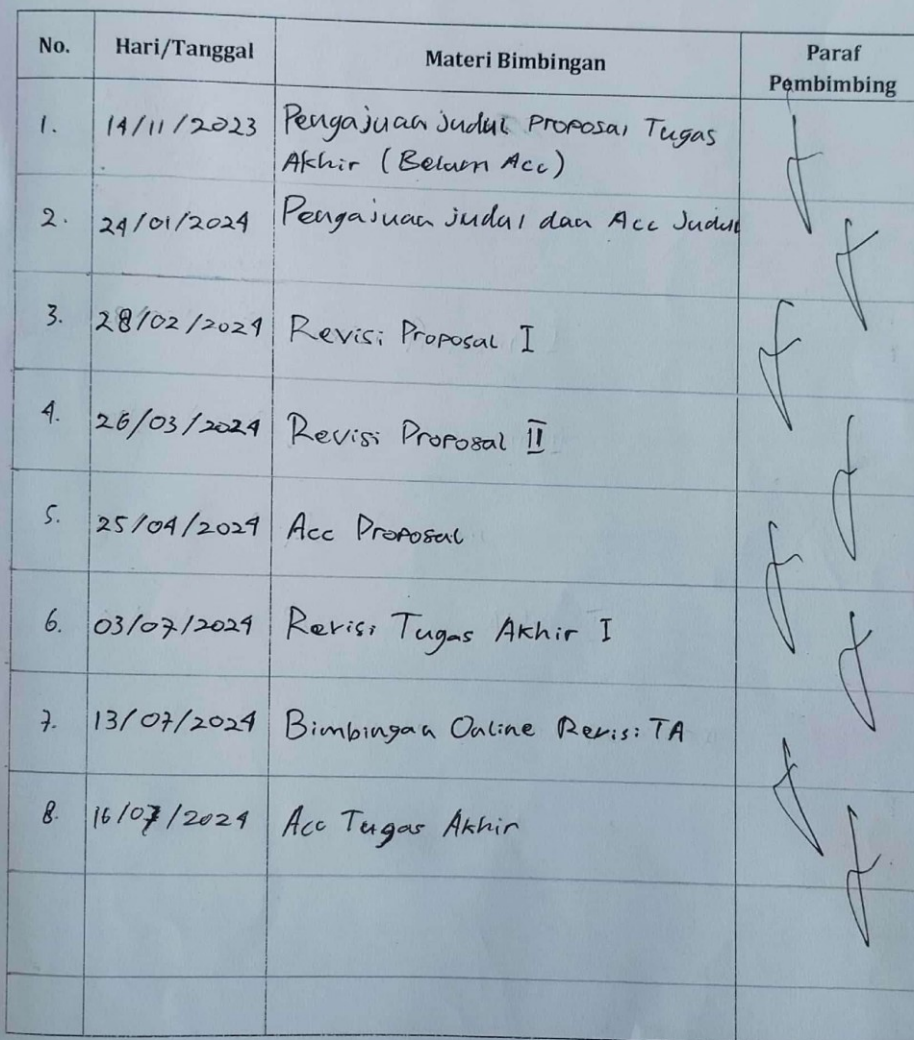 No. Hari/Tanggal Materi Bimbingan Paraf
Pembimbing
1. 14/11/2023 Pengajuan judul Proposal Tugas
Akhir (Belum Acc)
2. 24/01/2024 Pengajuan judul dan Acc Judul
3. 28/02/2024 Revisi Proposal I
4. 26/03/2024 Revisi Proposal II
5. 25/04/2024 Acc Proposal
6. 03/07/2024 Revisi Tugas Akhir I
7. 13/07/2024 Bimbingan Online Revisi TA
8. 16/07/2024 Acc Tugas Akhir